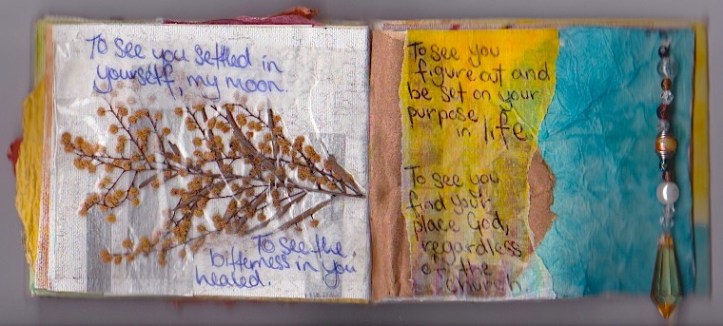 To see you settled in
yourself, my moon.
To see the
bitterness in you
healed.
To see you
figure out and
be set on your
purpose
in life.
To see you
find your
place God,
regardless
of the
church.